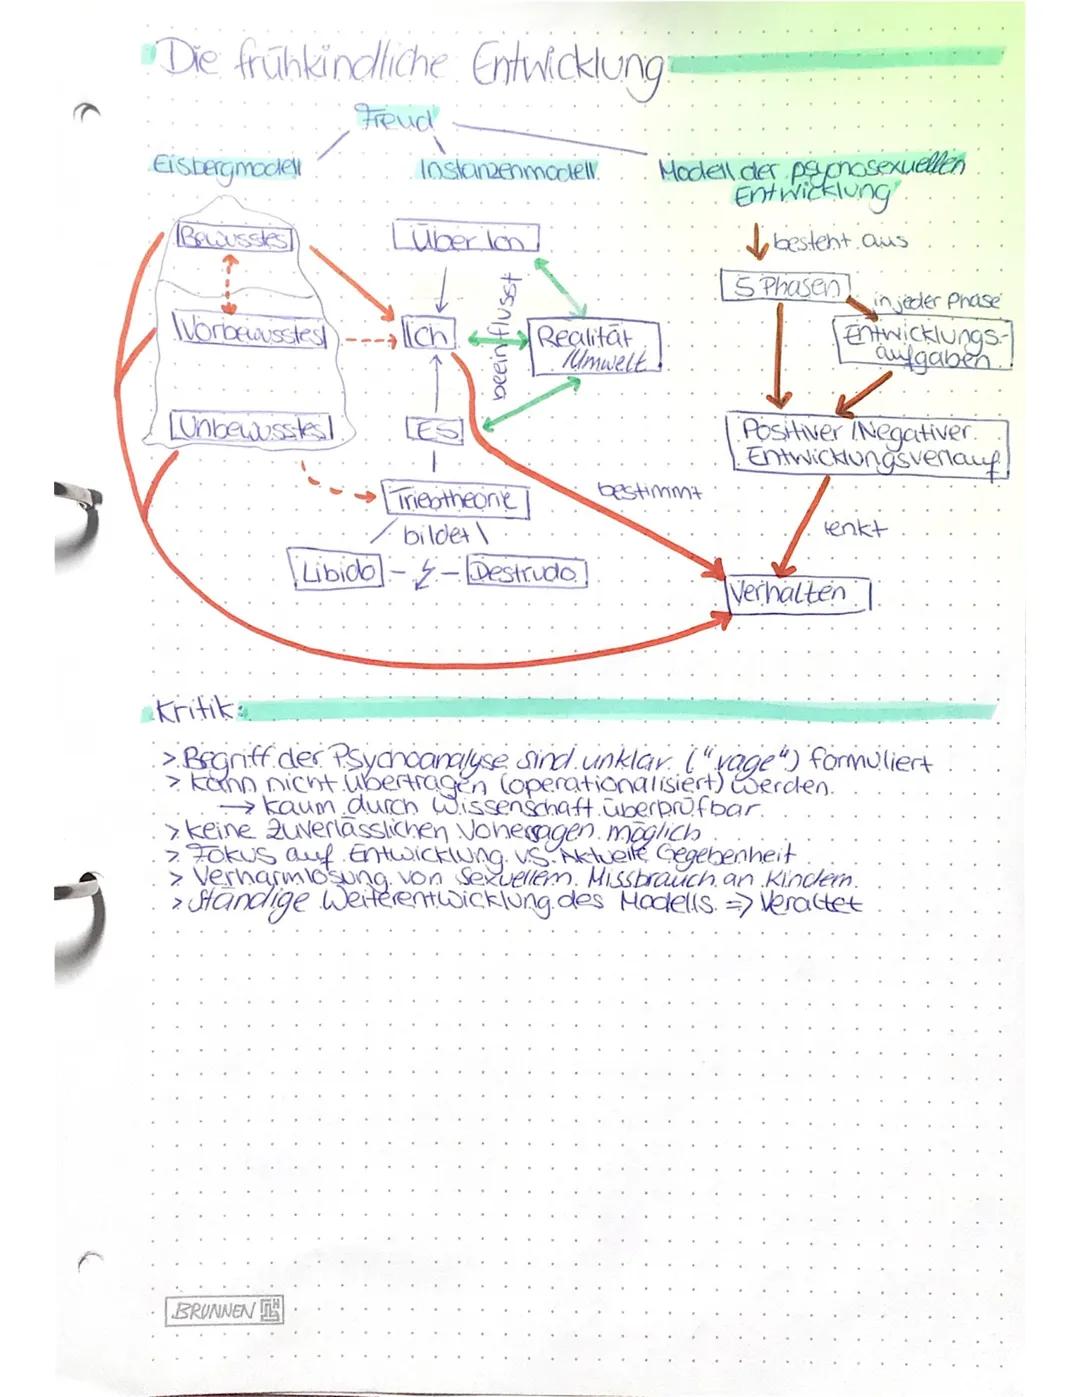 Die frühkindliche Entwicklung
Freud
Eisbergmodell
Instanzenmodell
Modell der psychosexuellen
Entwicklung
Bewusstes
Über Ich
besteht aus
5 Phasen
in jeder Phase
Vorbewusstes
Ich
beeinflusst
Realität
/Umwelt
Entwicklungs-
aufgaben
Unbewusstes
ES
Positiver /Negativer
Entwicklungsverlauf
Triebtheorie
bestimmt
bildet
lenkt
Libido
Destrudo
Verhalten
Kritik:
> Begriff der Psychoanalyse sind unklar ("vage") formuliert
> kann nicht übertragen (operationalisiert) werden.
→ kaum durch Wissenschaft überprüfbar.
> keine zuverlässlichen Vohersagen möglich
> Fokus auf Entwicklung vs. Aktuelle Gegebenheit
> Verharmlosung von sexuellem Missbrauch an Kindern.
> ständige Weiterentwicklung des Modells => Veraltet
BRUNNEN